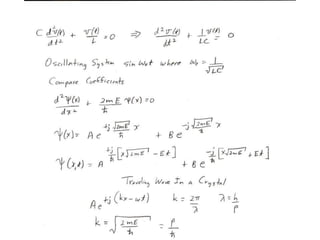 C d²v(t)/dt² + v(t)/L = 0 ⇒ d²v(t)/dt² + 1/LC v(t) = 0
Oscillating System sin W₀t where W₀ = 1/√LC
Compare Coefficients
d²Ψ(x)/dx² + 2mE/ħ Ψ(x) = 0
Ψ(x) = A e^(+j √2mE/ħ x) + B e^(-j √2mE/ħ x)
Ψ(x,t) = A e^(+j/ħ [x√2mE - Et]) + B e^(-j/ħ [x√2mE + Et])
Traveling Wave In a Crystal
A e^(+j (kx-wt)) k = 2π/λ λ = h/p
k = √(2mE/ħ) = p/ħ